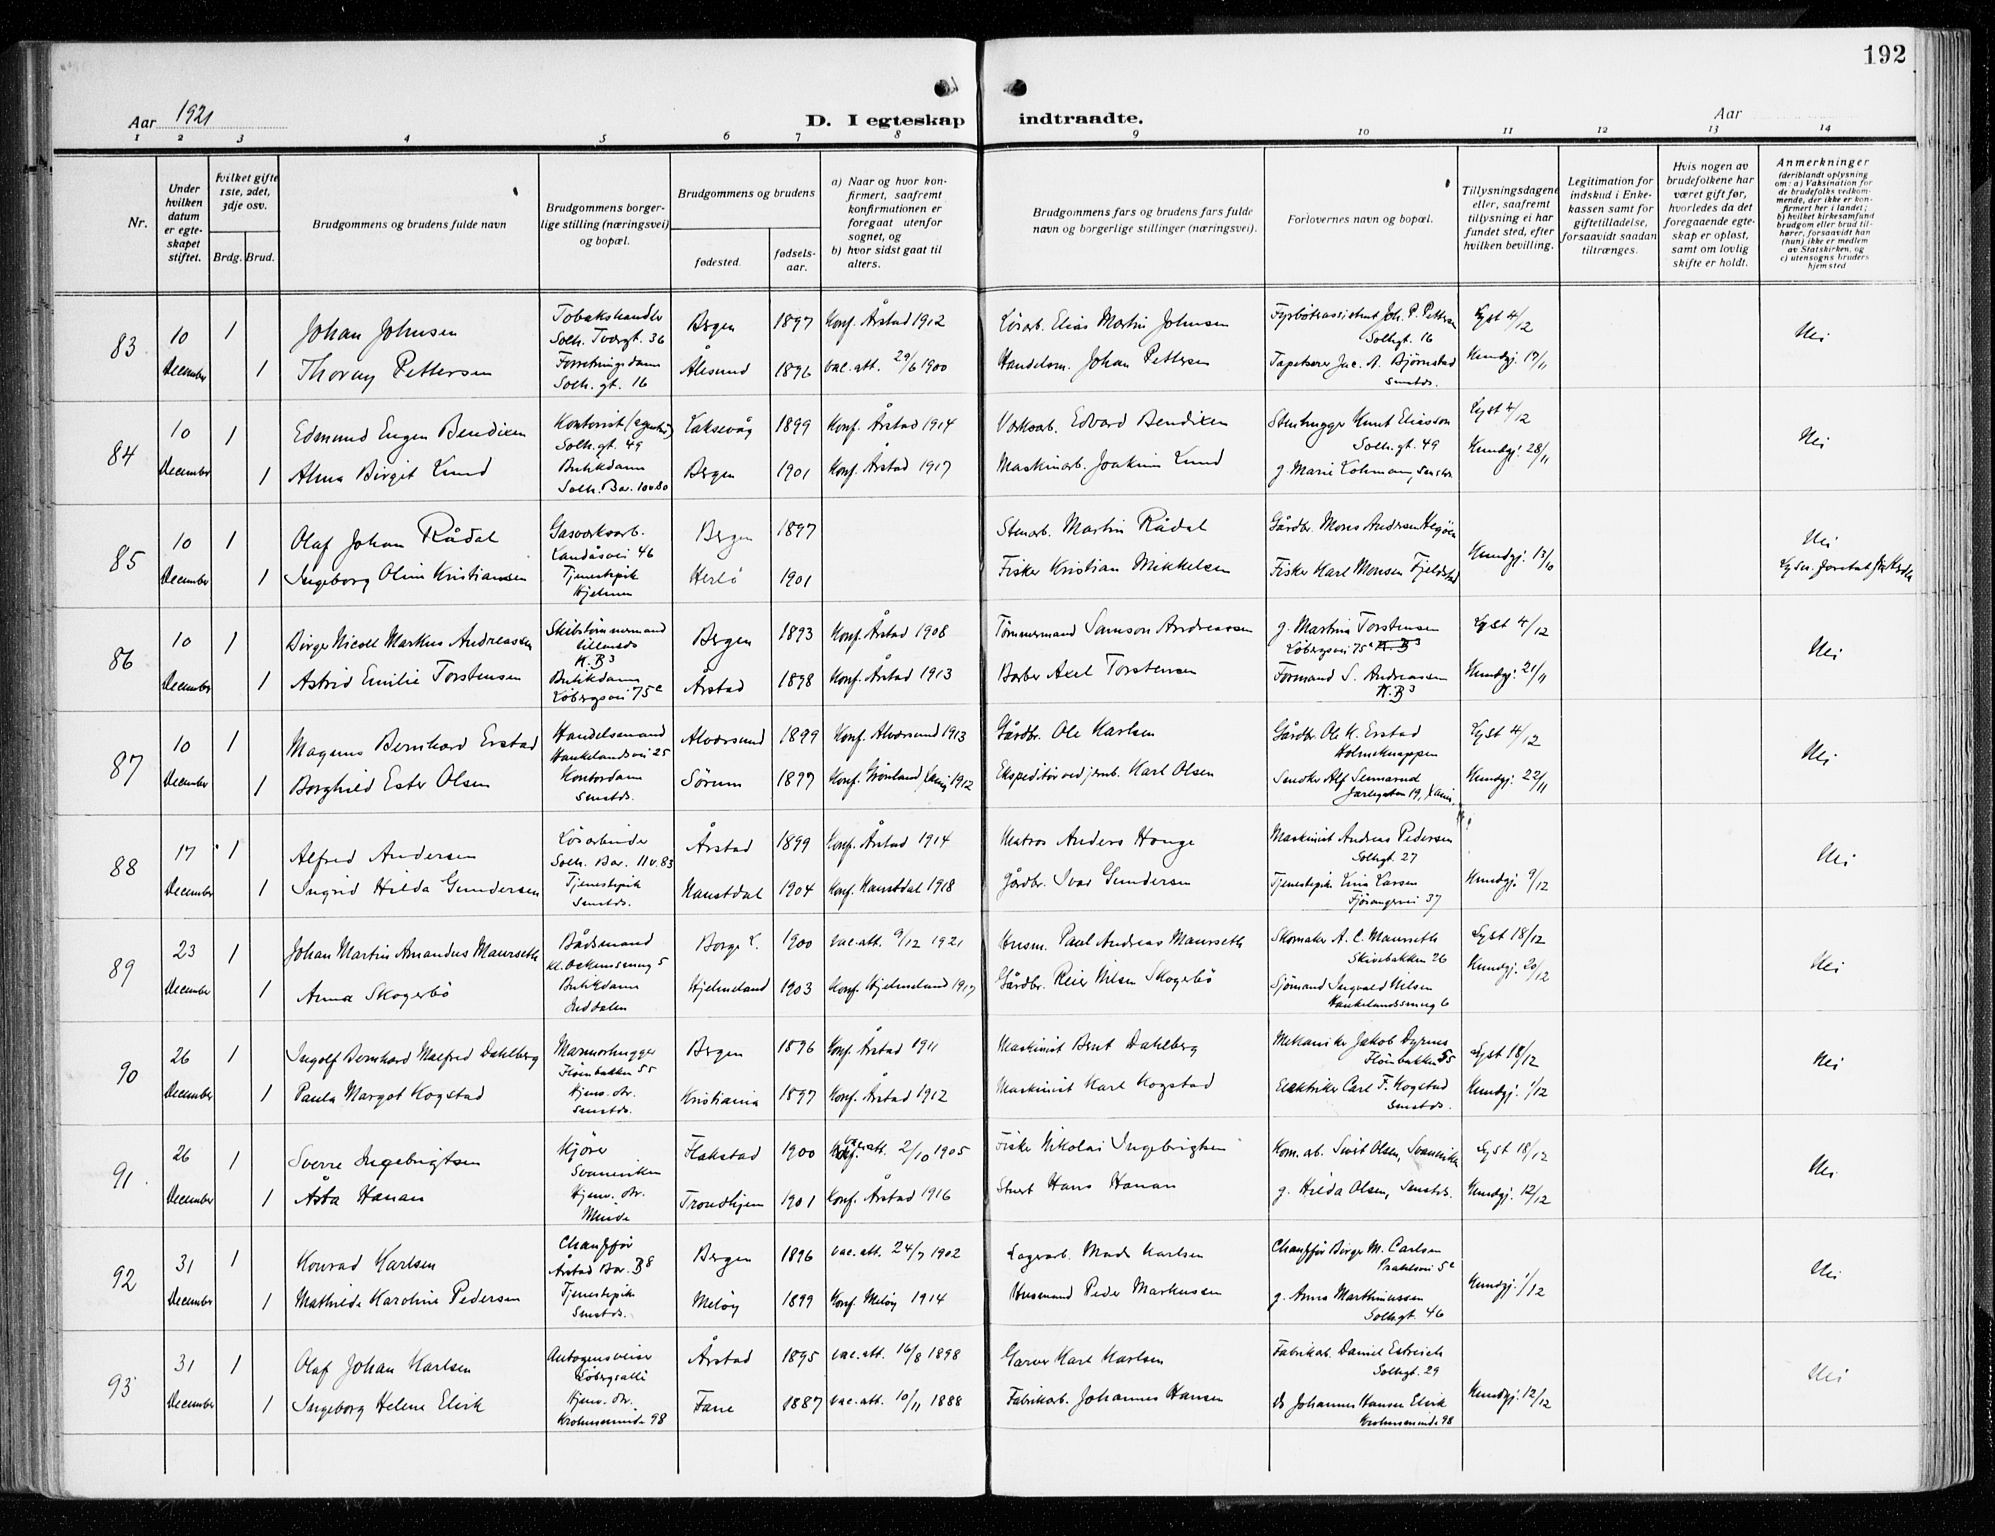 192
Aar 1921
D. I egteskap indtraadte.
Aar
1 2 3 4 5 6 7 8 9 10 11 12 13 14
Nr.
Under hvilken datum er egte-skapet stiftet.
Hvilket gifte 1ste, 2det, 3dje osv.
Brdg. Brud.
Brudgommens og brudens fulde navn
Brudgommens borger-lige stilling (næringsvei) og bopæl.
Brudgommens og brudens
fødested.
fødsels-aar.
a) Naar og hvor kon-firmert, saafremt konfirmationen er foregaat utenfor sognet, og
b) hvor sidst gaat til alters.
Brudgommens fars og brudens fars fulde navn og borgerlige stillinger (næringsvei).
Forlovernes navn og bopæl.
Tillysningsdagene eller, saafremt tillysning ei har fundet sted, efter hvilken bevilling.
Legitimation for indskud i Enke-kassen samt for giftetilladelse, forsaavidt saadan tiltrænges.
Hvis nogen av brudefolkene har været gift før, hvorledes da det foregaaende egte-skap er opløst, samt om lovlig skifte er holdt.
Anmerkninger (deriblandt oplysning om: a) Vaksination for de brudefolks vedkom-mende, der ikke er kon-firmert her i landet; b) hvilket kirkesamfund brudgom eller brud til-hører, forsaavidt han (hun) ikke er medlem av Statskirken, og c) utensogns bruders hjemsted
83 10 1 Johan Johnsen Tobakshandler Solh. Tværgt. 36 Bergen 1897 Konf. Årstad 1912 Løsarb. Elias Martin Johnsen Fyrbøterassistent Joh. P. Pettersen Solhgt. 16 Lyst 4/12 Nei
December 1 Thorny Pettersen Forretningsdame Solh. gt. 16 Ålesund 1896 vac. att. 29/6 1900 Handelsm. Johan Pettersen Tapetserer Jac. A. Bjørnstad Smstds. Kundgj. 17/11
84 10 1 Edmund Eugen Bendixen Kontorist (agentur) Solh. gt. 49 Laksevåg 1899 Konf. Årstad 1914 Værksarb. Edvard Bendixen Stenhugger Knut Eliasson Solh. gt. 49 Lyst 4/12 Nei
December 1 Alma Birgit Lund Butikdame Solh. Bar. 10 v. 80 Bergen 1901 Konf. Årstad 1917 Maskinarb. Joakim Lund g. Marie Lohmann, Smstds Kundgj. 28/11
85 10 1 Olaf Johan Rådal Gasverksarb. Landåsvei 46 Bergen 1897 Stenarb. Martin Rådal Gårdbr. Mons Andersen Hegøen Kundgj. 13/10 Nei
December 1 Ingeborg Oline Kristiansen Tjenestepik Hjelmen Herlø 1901 Fisker Kristian Mikkelsen Fisker Karl Monsen Fjeldstad
86 10 1 Birger Nicoll Markus Andreassen Skibstømmermand Lillemds K. B3 Bergen 1893 Konf. Årstad 1908 Tømmermand Samson Andreassen g. Martina Torstensen Løbergsvei 75c Lyst 4/12 Nei
December 1 Astrid Emilie Torstensen Butikdame Løbergsvei 75c Årstad 1898 Konf. Årstad 1913 Barber Axel Torstensen Formand S. Andreassen K. B3 Kundgj. 21/11
87 10 1 Magnus Bernhard Erstad Handelsmand Haukelandsvei 25 Alversund 1899 Konf. Alversund 1913 Gårdbr. Ole Karlsen Gårdbr. Ole K. Erstad Holmeknappen Lyst 4/12 Nei
December 1 Borghild Ester Olsen Kontordame Smstds. Sørum 1897 Konf. Grønland 1912 Ekspeditør ved jernb. Karl Olsen Snedker Alf Sennerud Jarlegaten 19, Kundgj. 22/11
88 17 1 Alfred Andersen Løsarbeider Solh. Bar. 11 v. 83 Årstad 1899 Konf. Årstad 1914 Matros Anders Hauge Maskinist Andreas Pedersen Solhgt. 27 Nei
December 1 Ingrid Hilda Gundersen Tjenestepik Smstds. Naustdal 1904 Konf. Naustdal 1918 Gårdbr. Ivar Gundersen Tjenestepik Lina Larsen Fjøsangervei 37 Kundgj. 9/12
89 23 1 Johan Martin Amandus Maurseth Bådsmand Borge L. 1900 vac. att. 9/12 1921 Husm. Paul Andreas Maurseth Skomaker A. C. Maurseth Skivebakken 26 Lyst 18/12 Nei
December 1 Anna Skogerbø Butikdame Inddalen Hjelmeland 1903 Konf. Hjelmeland 1917 Gårdbr. Reier Nilsen Skogerbø Sjømand Ingvald Nilsen Haukelandssmug 6 Kundgj. 20/12
90 26 1 Ingolf Bernhard Malfred Dahlberg Marmorhugger Fløenbakken 55 Bergen 1896 Konf. Årstad 1911 Maskinist Bent Dahlberg Mekaniker Jakob Dyrnes Fløenbakken 55 Lyst 18/12 Nei
December 1 Paula Margot Kogstad Hjem. dtr. Smstds. Kristiania 1897 Konf. Årstad 1912 Maskinist Karl Kogstad Elektriker Carl F. Kogstad Smstds. Kundgj. 1/12
91 26 1 Sverre Ingebrigtsen Kjører Svaneviken Flakstad 1900 vac. att. 2/10 1905 Fisker Nikolai Ingebrigtsen Kom. ab. Sivert Olsen, Svaneviken Lyst 18/12 Nei
December 1 Åsta Hanan Hjem. dtr. Minde Trondhjem 1901 Konf. Årstad 1916 Stuert Hans Hanan g. Hilda Olsen, Smstds. Kundgj. 12/12
92 31 1 Konrad Karlsen Chauffør Årstad Bar. B8 Bergen 1896 vac. att. 24/7 1902 Lagerarb. Mads Karlsen Chauffør Birger M. Carlsen 5c Kundgj. 1/12 Nei
December 1 Mathilde Karoline Pedersen Tjenestepik Smstds. Meløy 1899 Konf. Meløy 1914 Husmand Peder Markussen g. Anna Marthinussen Solh.gt. 46
93 31 1 Olaf Johan Karlsen Autogensveiser Løbergsallé Årstad 1895 vac. att. 16/8 1898 Garver Karl Karlsen Fabrikab. Daniel Estreich Solhgt. 29 Nei
December 1 Ingeborg Helene Elvik Hjem. dtr. Krohnsminde 98 Fane 1887 vac. att. 10/11 1888 Fabrikab. Johannes Hansen do Johannes Hansen Elvik Krohnsminde 98 Kundgj. 12/12